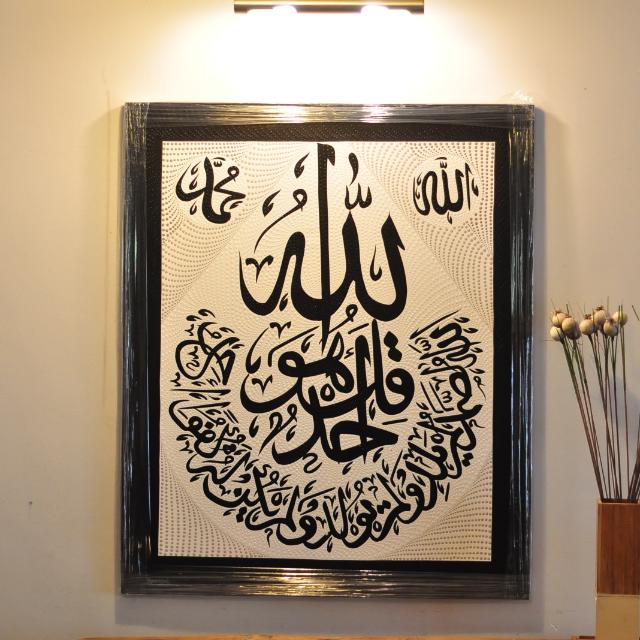 الله
محمد
قل هو الله أحد
الله الصمد لم يلد ولم يولد ولم يكن له كفوا أحد